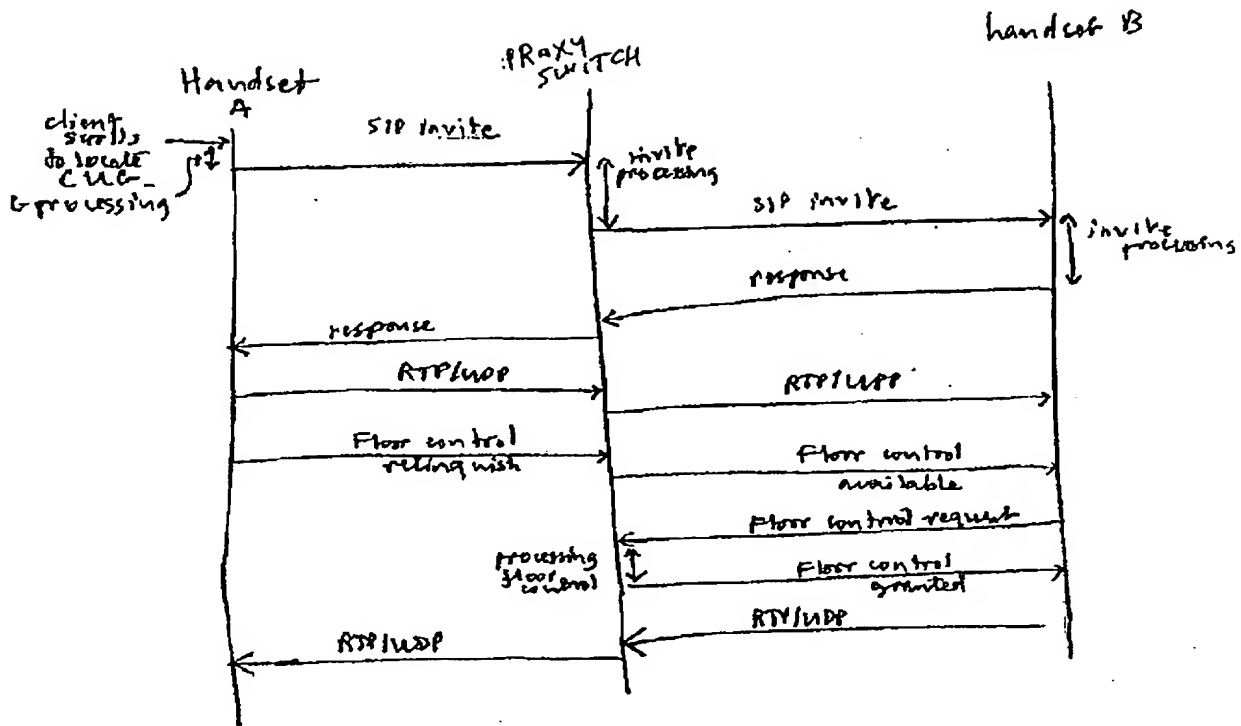 handset B
PROXY
SWITCH
Handset
A
client
to locate
CUG
& processing
SIP invite
invite
processing
SIP invite
invite
processing
response
response
RTP/UDP
RTP/UDP
Floor control
relinquish
Floor control
available
Floor control request
processing
floor
control
Floor control
granted
RTP/UDP
RTP/UDP